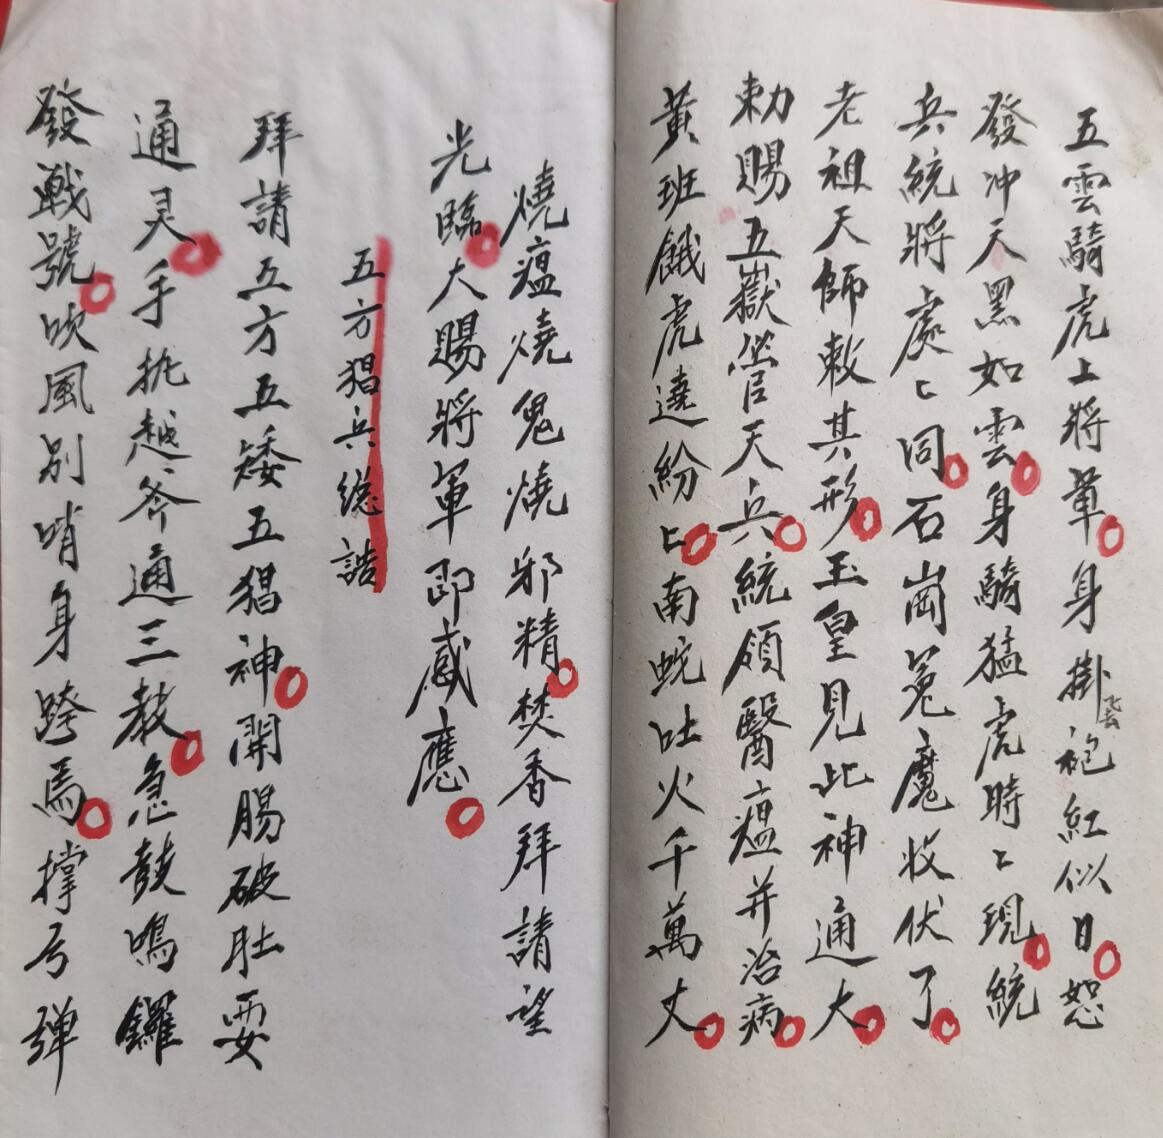 五雲騎虎上將軍身掛雲袍紅似日恕
發冲天黑如雲身騎猛虎時〻現統
兵統將處〻同石崗冤魔收伏了
老祖天師敕其形玉皇見此神通大
勅賜五嶽管天兵統領醫瘟并治病
黃班餓虎遶紛〻南蛇吐火千萬丈
燒瘟燒鬼燒邪精焚香拜請望
光臨大賜將軍即感應
五方猖兵總誥
拜請五方五矮五猖神開腸破肚要
通灵手执越斧通三教急鼓鳴鑼
發戰號吹風别哨身跨馬撑弓弹